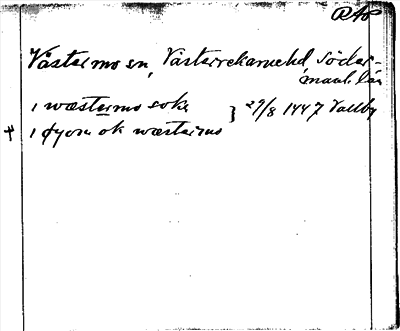 RAp
Västermo sn, Västerrekarnehd, Söder-
manl. län
i wæstermo sokn } 29/8 1447 Vallby
+ i øyom ok wæstermo